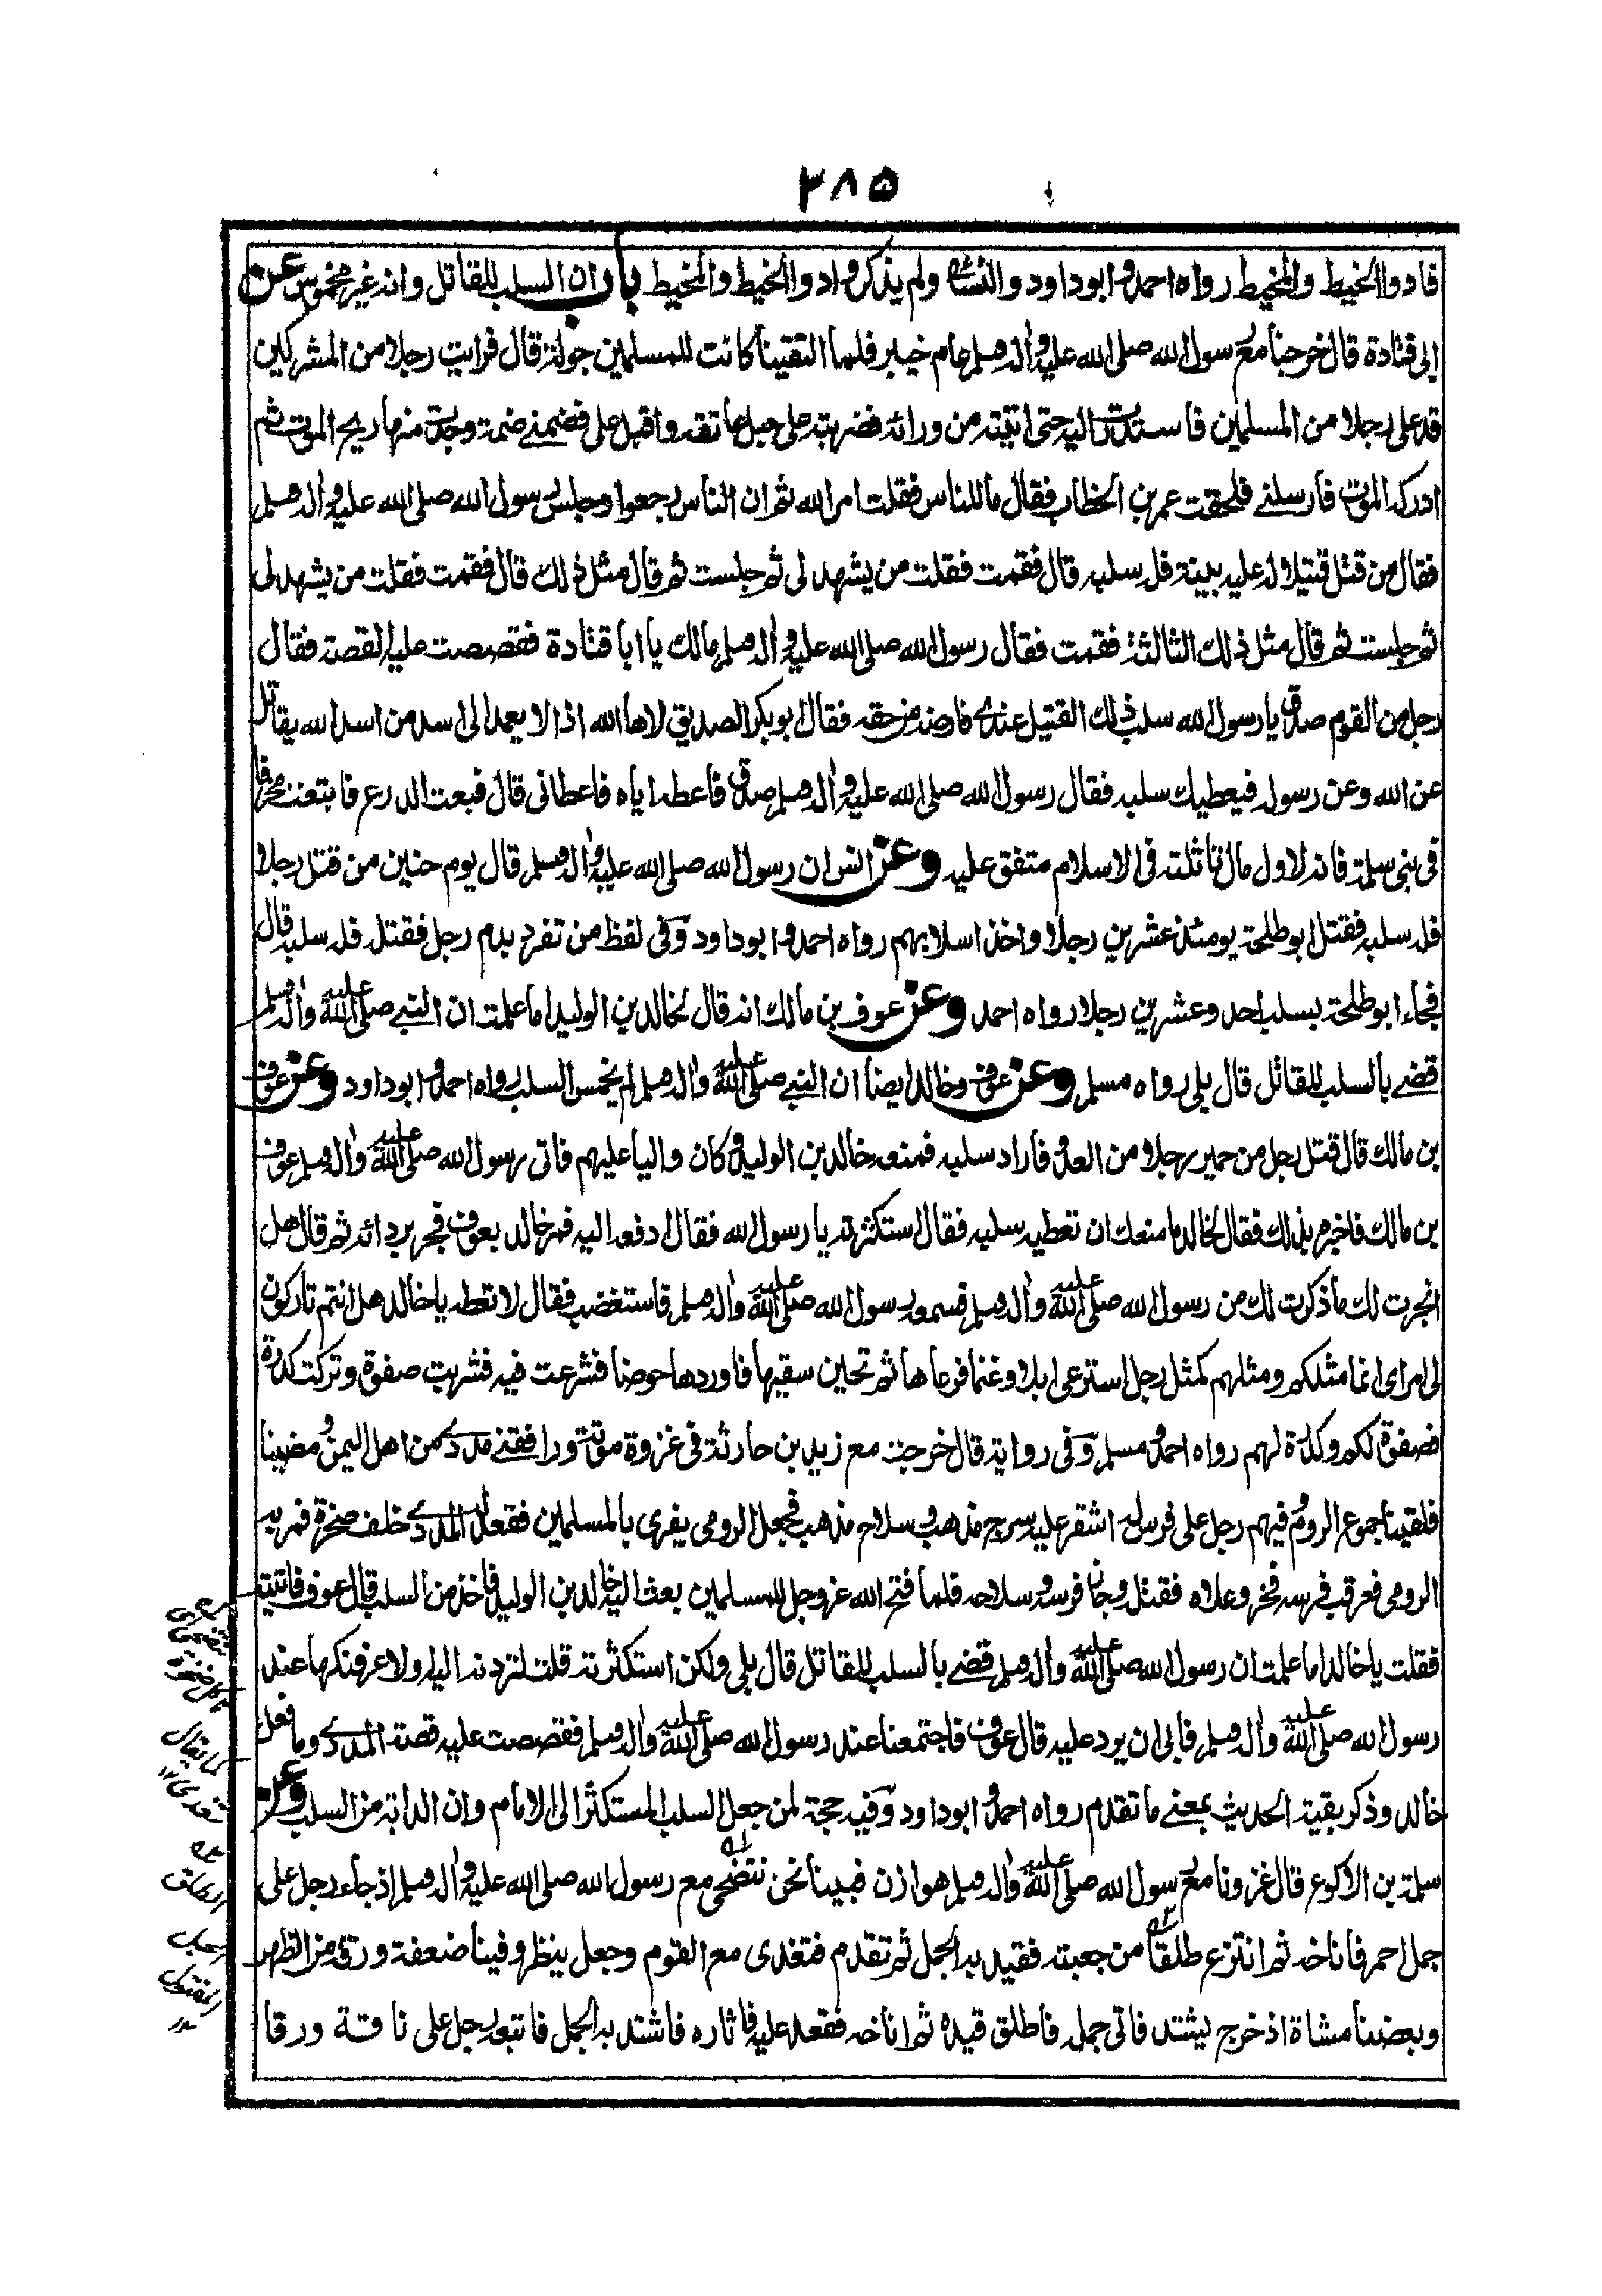 ٣٨٥
فادوا الخيط والمخيط رواه احمد و ابوداود والنسائى ولم يذكروا ادوا الخيط والمخيط باب ان السلب للقاتل وانه غير مخموس عن
ابى قتادة قال خرجنا مع رسول الله صلى الله عليه واله وسلم عام خيبر فلما التقينا كانت للمسلمين جولة قال فرايت رجلا من المشركين
قد على رجلا من المسلمين فاستدرت اليه حتى اتيته من ورائه فضربته على حبل عاتقه واقبل على فضمنى ضمة وجدت منها ريح الموت ثم
ادركه الموت فارسلنى فلحقت عمر بن الخطاب فقال ما للناس فقلت امر الله ثم ان الناس رجعوا وجلس رسول الله صلى الله عليه واله وسلم
فقال من قتل قتيلا له عليه بينة فله سلبه قال فقمت فقلت من يشهد لى ثم جلست ثم قال مثل ذلك قال فقمت فقلت من يشهد لى
ثم جلست ثم قال مثل ذلك الثالثة فقمت فقال رسول الله صلى الله عليه واله وسلم مالك يا ابا قتادة فقصصت عليه القصة فقال
رجل من القوم صدق يا رسول الله سلب ذلك القتيل عندى فارضه من حقه فقال ابو بكر الصديق لاها الله اذا لا يعمد الى اسد من اسد الله يقاتل
عن الله وعن رسوله فيعطيك سلبه فقال رسول الله صلى الله عليه واله وسلم صدق فاعطه اياه فاعطانى قال فبعت الدرع فابتعت مخرفا
فى بنى سلمة فانه لاول مال تاثلته فى الاسلام متفق عليه وعن انس ان رسول الله صلى الله عليه واله وسلم قال يوم حنين من قتل رجلا
فله سلبه فقتل ابو طلحة يومئذ عشرين رجلا واخذ اسلابهم رواه احمد و ابوداود وفى لفظ من تفرد بدم رجل فقتله فله سلبه قال
فجاء ابو طلحة بسلب احد وعشرين رجلا رواه احمد وعن عوف بن مالك انه قال لخالد بن الوليد اما علمت ان النبى صلى الله عليه واله وسلم
قضى بالسلب للقاتل قال بلى رواه مسلم وعن عوف وخالد ايضا ان النبى صلى الله عليه واله وسلم لم يخمس السلب رواه احمد و ابوداود وعن عوف
بن مالك قال قتل رجل من حمير رجلا من العدو فاراد سلبه فمنعه خالد بن الوليد وكان واليا عليهم فاتى رسول الله صلى الله عليه واله وسلم عوف
بن مالك فاخبره بذلك فقال لخالد ما منعك ان تعطيه سلبه فقال استكثرته يا رسول الله فقال ادفعه اليه فمر خالد بعوف فجر بردائه ثم قال هل
انجزت لك ما ذكرت لك من رسول الله صلى الله عليه واله وسلم فسمعه رسول الله صلى الله عليه واله وسلم فاستغضب فقال لا تعطه يا خالد هل انتم تاركون
لى امراى انما مثلكم ومثلهم كمثل رجل استرعى ابلا وغنما فرعاها ثم تحين سقيها فاوردها حوضا فشرعت فيه فشربت صفوة وتركت كدرة
فصفوة لكم وكدرة لهم رواه احمد و مسلم وفى رواية قال خرجت مع زيد بن حارثة فى غزوة موتة ورافقنى مددى من اهل اليمن ومضينا
فلقينا جموع الروم وفيهم رجل على فرس له اشقر عليه سرج مذهب و سلاح مذهب فجعل الرومى يفرى بالمسلمين فقعد له المددى خلف صخرة فمر به
الرومى فعرقب فرسه فخر وعلاه فقتله وحاز فرسه و سلاحه فلما فتح الله عز وجل للمسلمين بعث اليه خالد بن الوليد فاخذ من السلب قال عوف فاتيته
فقلت يا خالد اما علمت ان رسول الله صلى الله عليه واله وسلم قضى بالسلب للقاتل قال بلى ولكن استكثرته قلت لتردنه اليه او لاعرفنكها عند
رسول الله صلى الله عليه واله وسلم فابى ان يرد عليه قال عوف فاجتمعنا عند رسول الله صلى الله عليه واله وسلم فقصصت عليه قصة المددى وما فعل
خالد وذكر بقية الحديث بمعنى ما تقدم رواه احمد و ابوداود وفيه حجة لمن جعل السلب المستكثر الى الامام وان الدابة من السلب وعن
سلمة بن الاكوع قال غزونا مع رسول الله صلى الله عليه واله وسلم هوازن فبينا نحن نتضحى مع رسول الله صلى الله عليه واله وسلم اذ جاء رجل على
جمل احمر فاناخه ثم انتزع طلقا من جعبته فقيد به الجمل ثم تقدم فتغدى مع القوم وجعل ينظر وفينا ضعفة ورقة من الظهر
وبعضنا مشاة اذ خرج يشتد فاتى جمله فاطلق قيده ثم اناخه فقعد عليه فاثاره فاشتد به الجمل فاتبعه رجل على ناقة ورقا
كما يقال
نتغدى ١٢